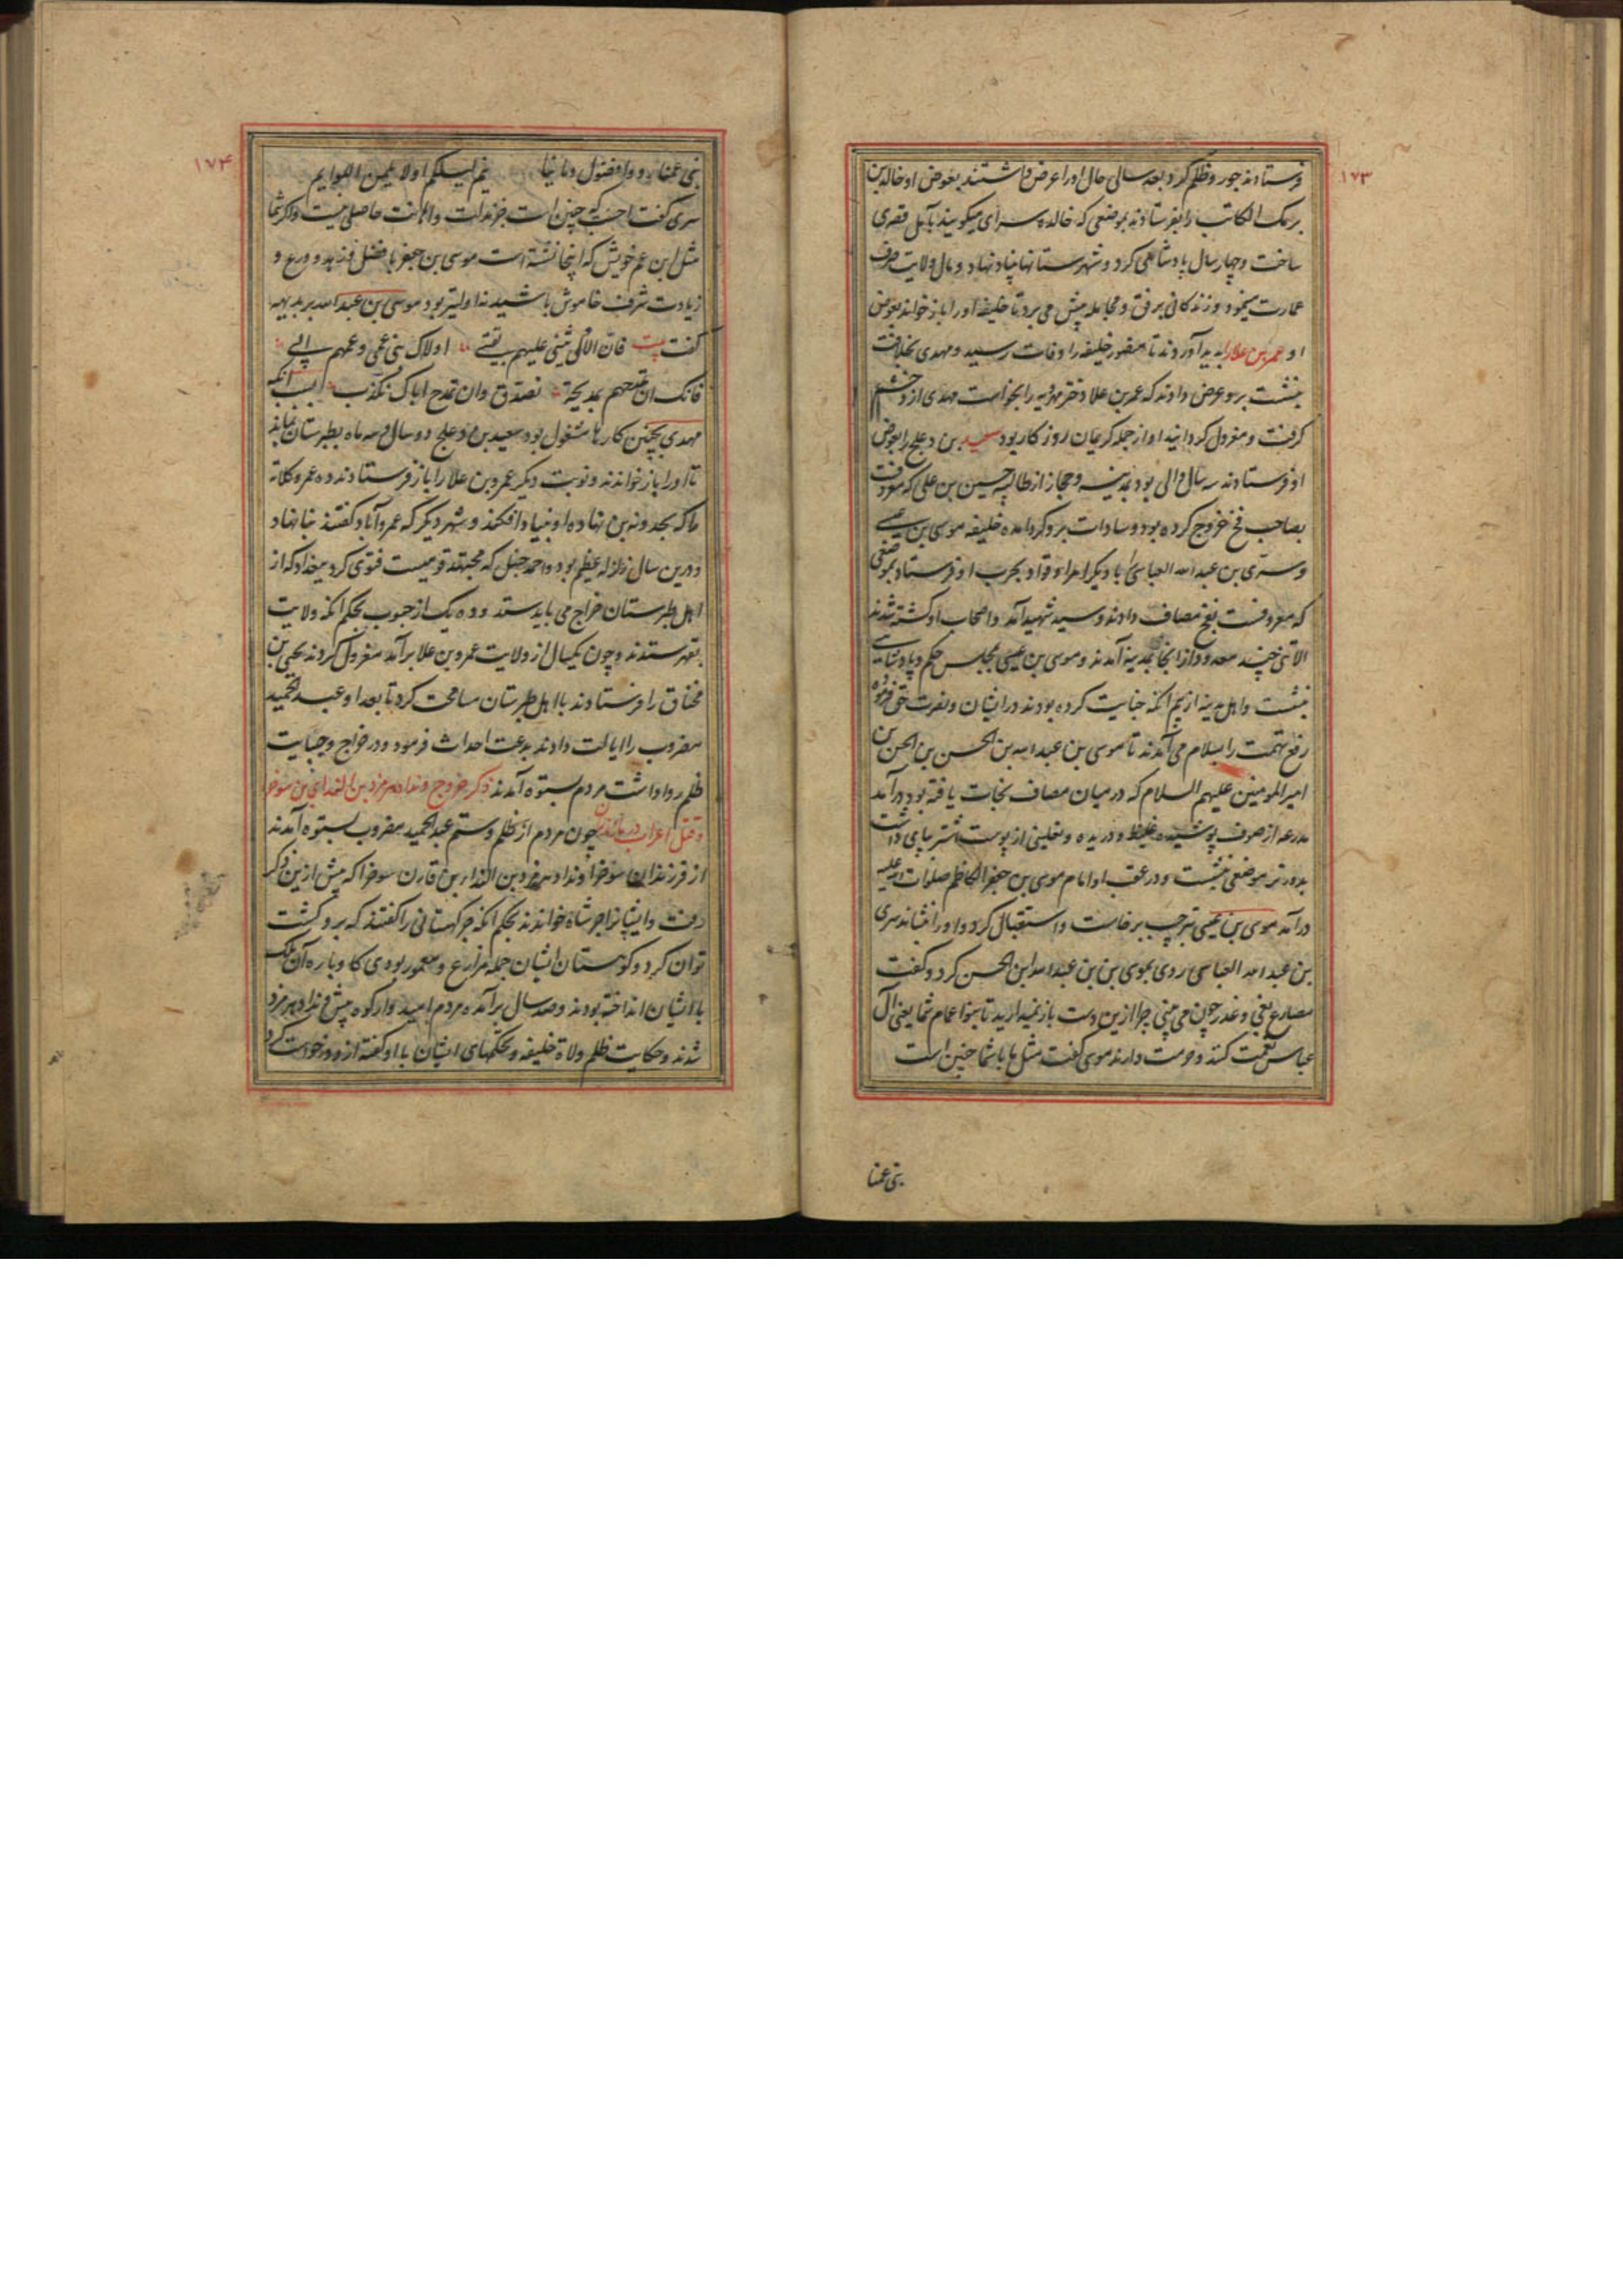 ۱۷۳
فرستادند جور و ظلم کرد بعد سالی حال او را عرض داشتند بعوض او خالد بن
برمک الکاتب را بفرستادند بموضعی که خالده سرای میگویند بآمل قصری
ساخت و چهار سال پادشاهی کرد و شهرستانها بنیاد نهاد و مال ولایت صرف
عمارت میخود و زندگانی برفق و مجامله پیش می برد تا خلیفه او را باز خواند بعوض
او عمر بن علا را پدید آوردند تا منصور خلیفه را وفات رسید و مهدی بخلافت
بنشست برو عرض دادند که عمر بن علا دختر مهرویه را بخواست مهدی ازو خشم
گرفت و معزول گردانید او از جمله کریمان روزگار بود سعید بن دعلج را بعوض
او فرستادند سه سال والی بود بمدینه و حجاز از طالبیه حسین بن علی که معروفست
بصاحب فخ خروج کرده بود و سادات برو گرد آمده خلیفه موسی بن عیسی
و سری بن عبد الله العباسی را با دیگر امرا و قواد بحرب او فرستاد بموضعی
که معروفست بفخ مصاف دادند و سید شهید آمد و اصحاب او کشته شدند
الا تنی چند معدود از آنجا بمدینه آمدند و موسی بن عیسی بمجلس حکم و پادشاهی
بنشست و اهل مدینه از بیم آنکه خیانت کرده بودند در ایشان و نصرت حق فرموده
رفع تهمت را بسلام می آمدند تا موسی بن عبد الله بن الحسن بن الحسن بن
امیر المومنین علیهم السلام که در میان مصاف نجات یافته بود در آمد
مدرعه از صوف پوشیده غلیظ و دریده و نعلینی از پوست اشتر بپای داشت
بدورتر موضعی بنشست و در عقب او امام موسی بن جعفر الکاظم صلوات الله علیه
در آمد موسی بن عیسی بترحیب برخاست و استقبال کرد و او را بنشاند سری
بن عبد الله العباسی روی بموسی بن بن عبد الله ابن الحسن کرد و گفت
مصارع بغی و غدر چون می بینی چرا ازین دست باز نمیدارید تا بنو اعمام شما یعنی آل
عباس نعمت کنند و حرمت دارند موسی گفت مثل ما با شما چنین است
بنی عمنا
۱۷۴
بنی عمنا ردوا فضول دمائنا ینم لیلکم اولا یلمن اللوایم
سری گفت احسب که چنین است جز مذلت و اهانت حاصلی نیست و اگر شما
مثل ابن عم خویش که اینجا نشسته است موسی بن جعفر با فضل و زهد و ورع و
زیادت شرف خاموش باشید اولیتر بود موسی بن عبد الله بر بدیهه
گفت بیت فان الاولی تثنی علیهم بتقی اولاک بنی عمی و عمهم ابی
فانک ان تمدحهم بمدیحة تصدق وان تمدح اباک تکذب بسبب آنکه
مهدی بچنین کارها مشغول بود سعید بن دعلج دو سال و سه ماه بطبرستان بماند
تا او را باز خواندند و نوبت دیگر عمرو بن علا را باز فرستادند ده عمرو کلاته
ما که بحد ونه بن نهاده او بنیاد افکند و شهر دیگر که عمروآباد گفتند بنا نهاد
و درین سال زلزله عظیم بود و احمد حنبل که مجتهد قومیست فتوی کرد ببغداد که از
اهل طبرستان خراج می بایدستد و ده یک از حبوب بحکم آنکه ولایت
بقهر ستدند و چون یکسال از ولایت عمرو بن علا برآمد معزول کردند یحیی بن
مخناق را فرستادند با اهل طبرستان مسامحت کرد تا بعد او عبد الحمید
مضروب را ایالت دادند بدعت احداث فرمود و در خراج و جبایت
ظلم روا داشت مردم بستوه آمدند ذکر خروج ونداد هرمزد بن النداى بن سوخرا
و قتل اعراب در مازندران چون مردم از ظلم و ستم عبد الحمید مضروب بستوه آمدند
از فرزندان سوخرا ونداد هرمزد بن النداء بن قارن سوخرا که پیش ازین ذکر
رفت و ایشانرا جرشاه خواندند بحکم آنکه جر کهستانی را گفتند که برو کشت
توان کرد و کوهستان ایشان جمله مزارع و معمور بودی کا وباره آن ملک
با ایشان انداخته بودند و صد سال برآمده مردم امیدوار کوه پیش ونداد هرمزد
شدند و حکایت ظلم ولاة خلیفه و تحکمهای ایشان با او گفته ازو درخواست کرد